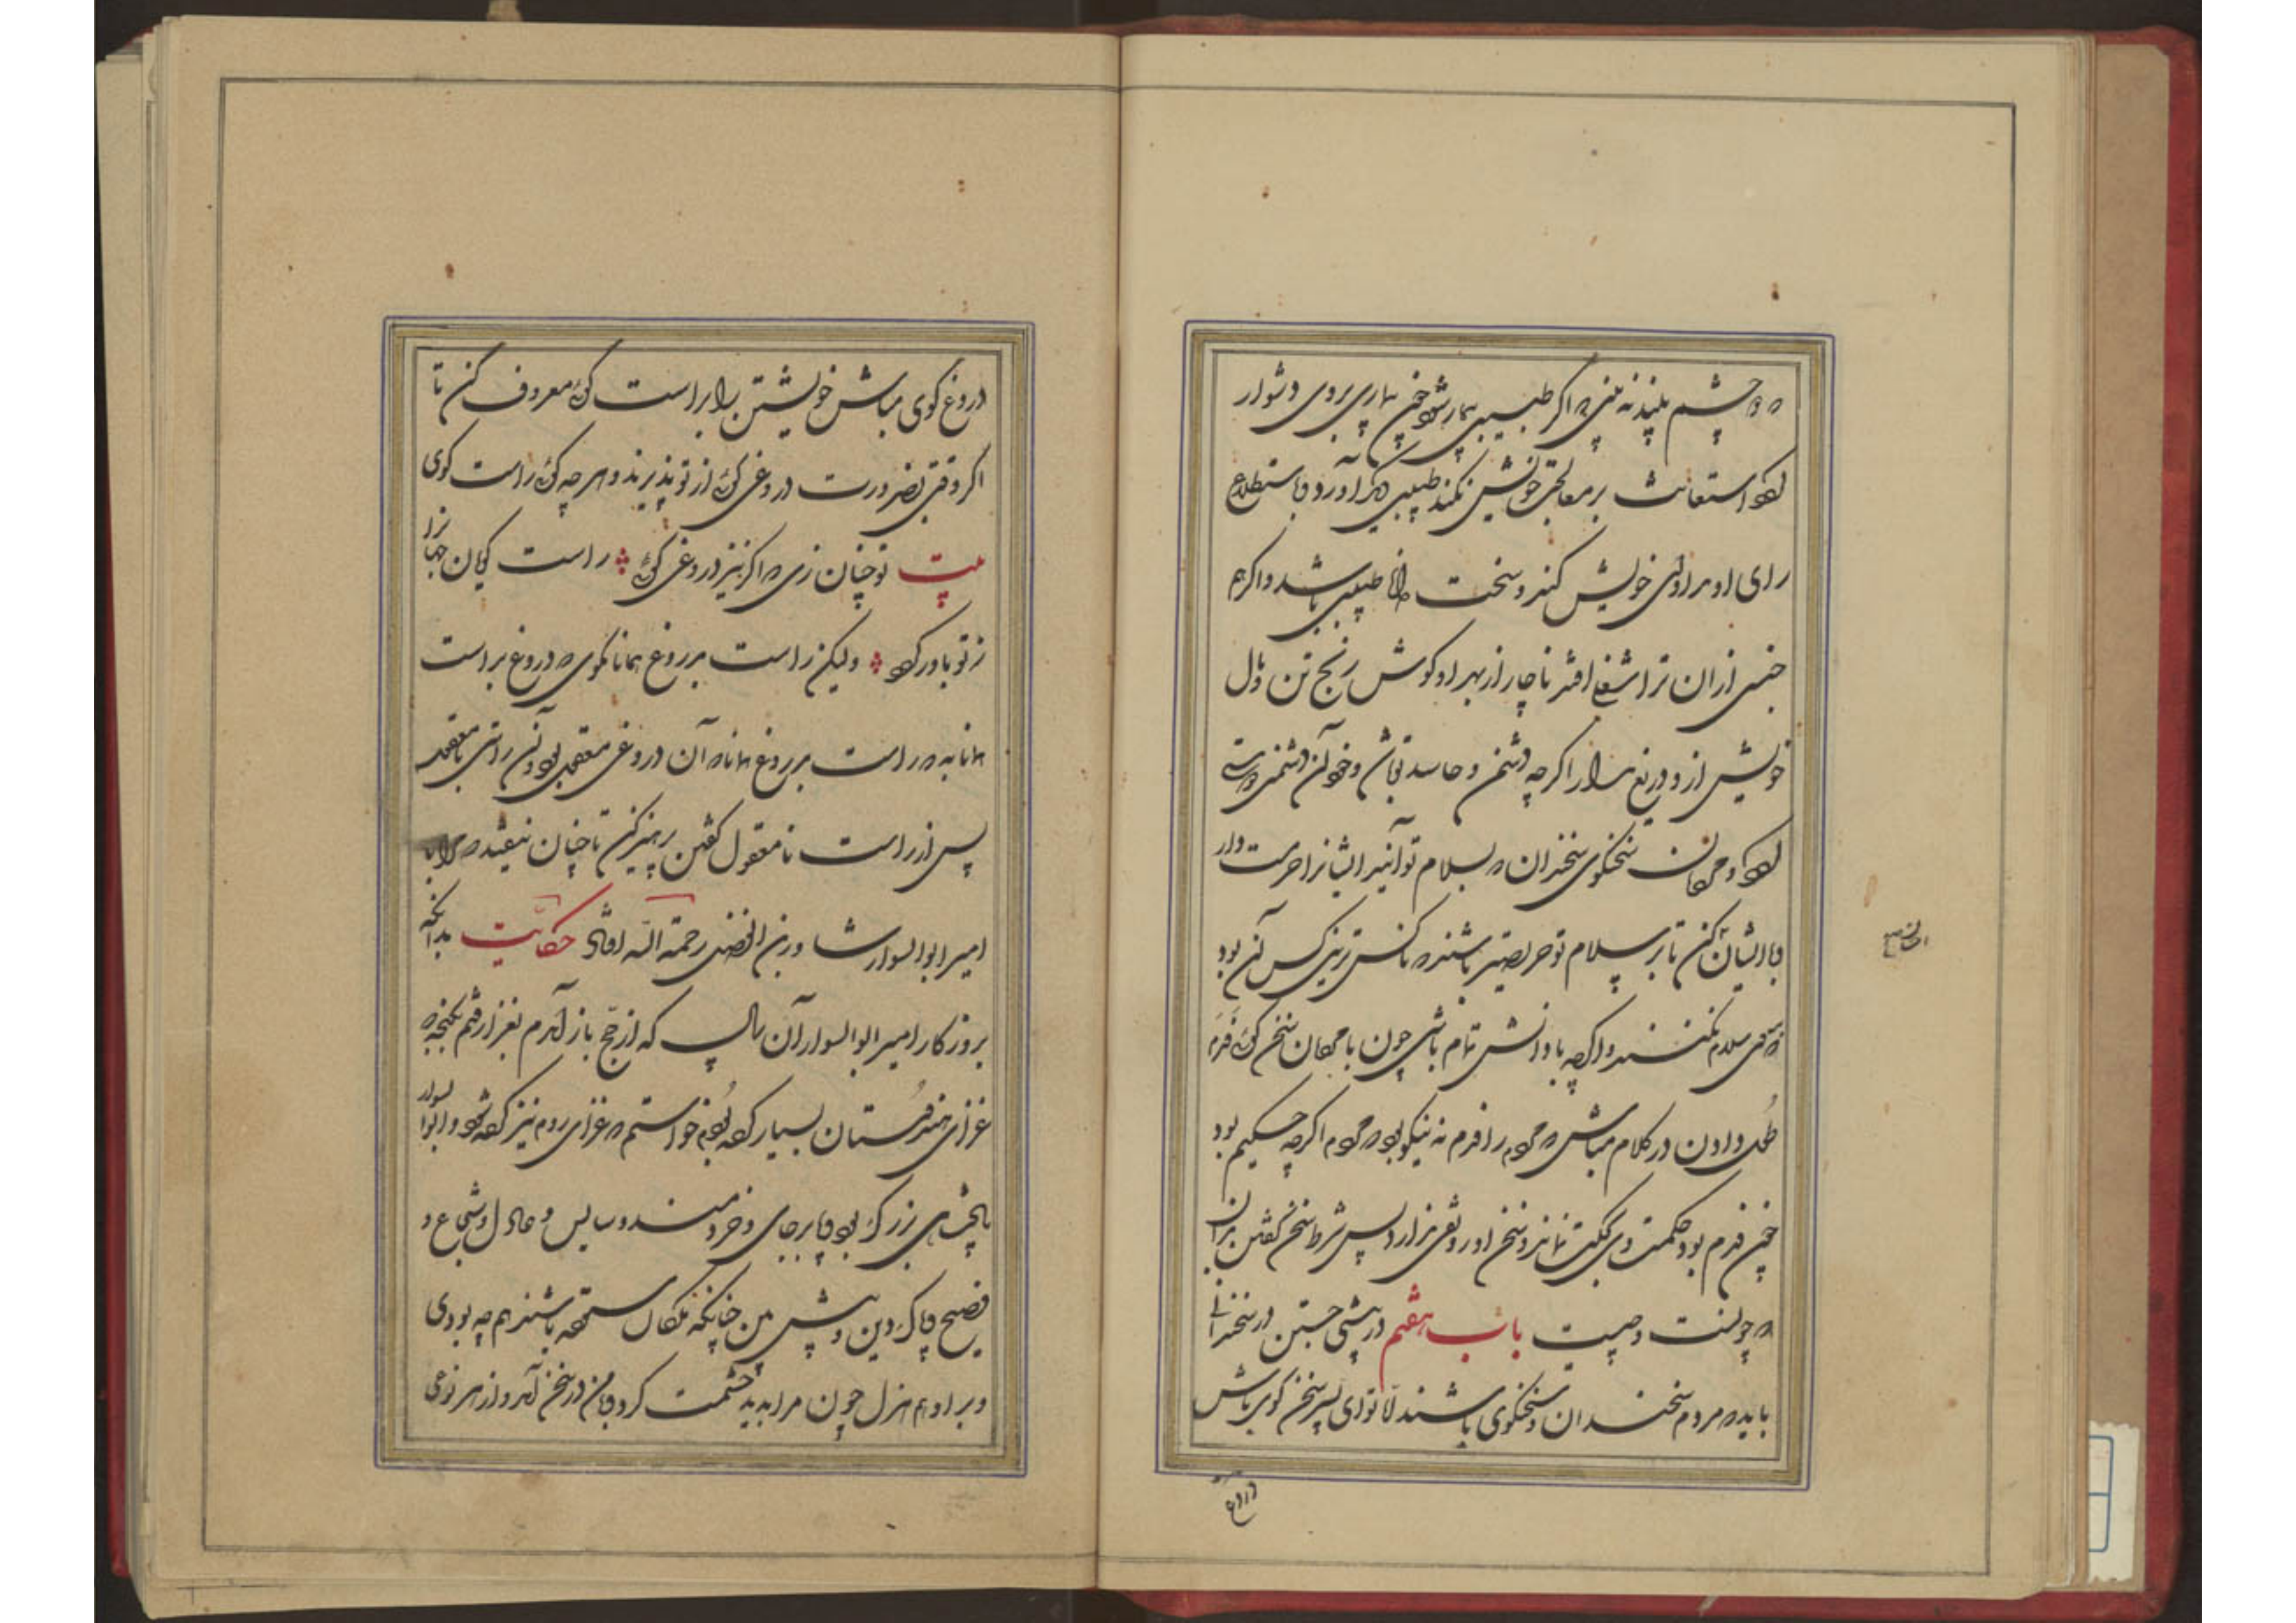 که دو چشم بیند نه بینی که اگر طبیبی بیمار شود چون بیماری بروی دشوار
شود استعانت بر معالجت خویش نکند طبیبی دیگر آورد و باستطلاع
رای او مداوای خویش کند و سخت دانا طبیبی باشد و اگر هم
جنسی از ان ترا شغلی افتد ناچار از بهر او کوشش رنج تن و مال
خویش ازو دریغ مدار اگر چه دشمن و حاسد تو باشد
شود و مردمان سخنگوی سخندان که بسلام تو آیند ایشانرا حرمت دار
و با ایشان کن تا بر سلام تو حریصتر باشند که ناکس ترین کس آن بود
که بر وی سلام نکنند و اگر چه با دانش تمام باشی چون با مردمان سخن گوئی
در کلام مباش که مردم را نه نیکو بود که مردم اگر چه حکیم بود
چون بود حکمت وی بحکمت نماند و سخن او رونقی ندارد پس شرط سخن گفتن بدان
که چونست و چیست باب هفتم در پیشی جستن در سخندانی
باید که مردم سخندان و سخنگوی باشند اما تو ای پسر سخن گوی باش
دروغ
دروغ گوی مباش خویشتن را براست گوئی معروف کن تا
اگر وقتی بضرورت دروغی گوئی از تو پذیرند و هر چه گوئی راست گوی
بیت تو چنان زی که اگر نیز دروغی گوئی راست گویان جهانرا
ز تو باور گردد ولیکن راست بدروغ همانا مگوی که دروغ براست
همانا به که راست بدروغ همانا که آن دروغ مقبول بود و آن راستی نامقبول
پس از راست نامعقول گفتن پرهیز کن تا چنان نیفتد که مرا با
امیر ابوالسوار شاور بن الفضل رحمة الله افتاد حکایت بدانکه
بروزگار امیر ابوالسوار آن سال که از حج باز آمدم بغزا رفتم بگنجه که
غزای هندوستان بسیار کرده بودم خواستم که غزای روم نیز کرده شود و ابوالسوار
پادشاهی بزرگ بود و پا برجای و خردمند و سایس و عادل و شجاع و
فصیح و پاک دین و پیش بین چنانکه ملکان ستوده باشند همه جد بودی
و بر او هم هزل چون مرا بدید حشمت کرد و با من در سخن آمد و از هر نوعی